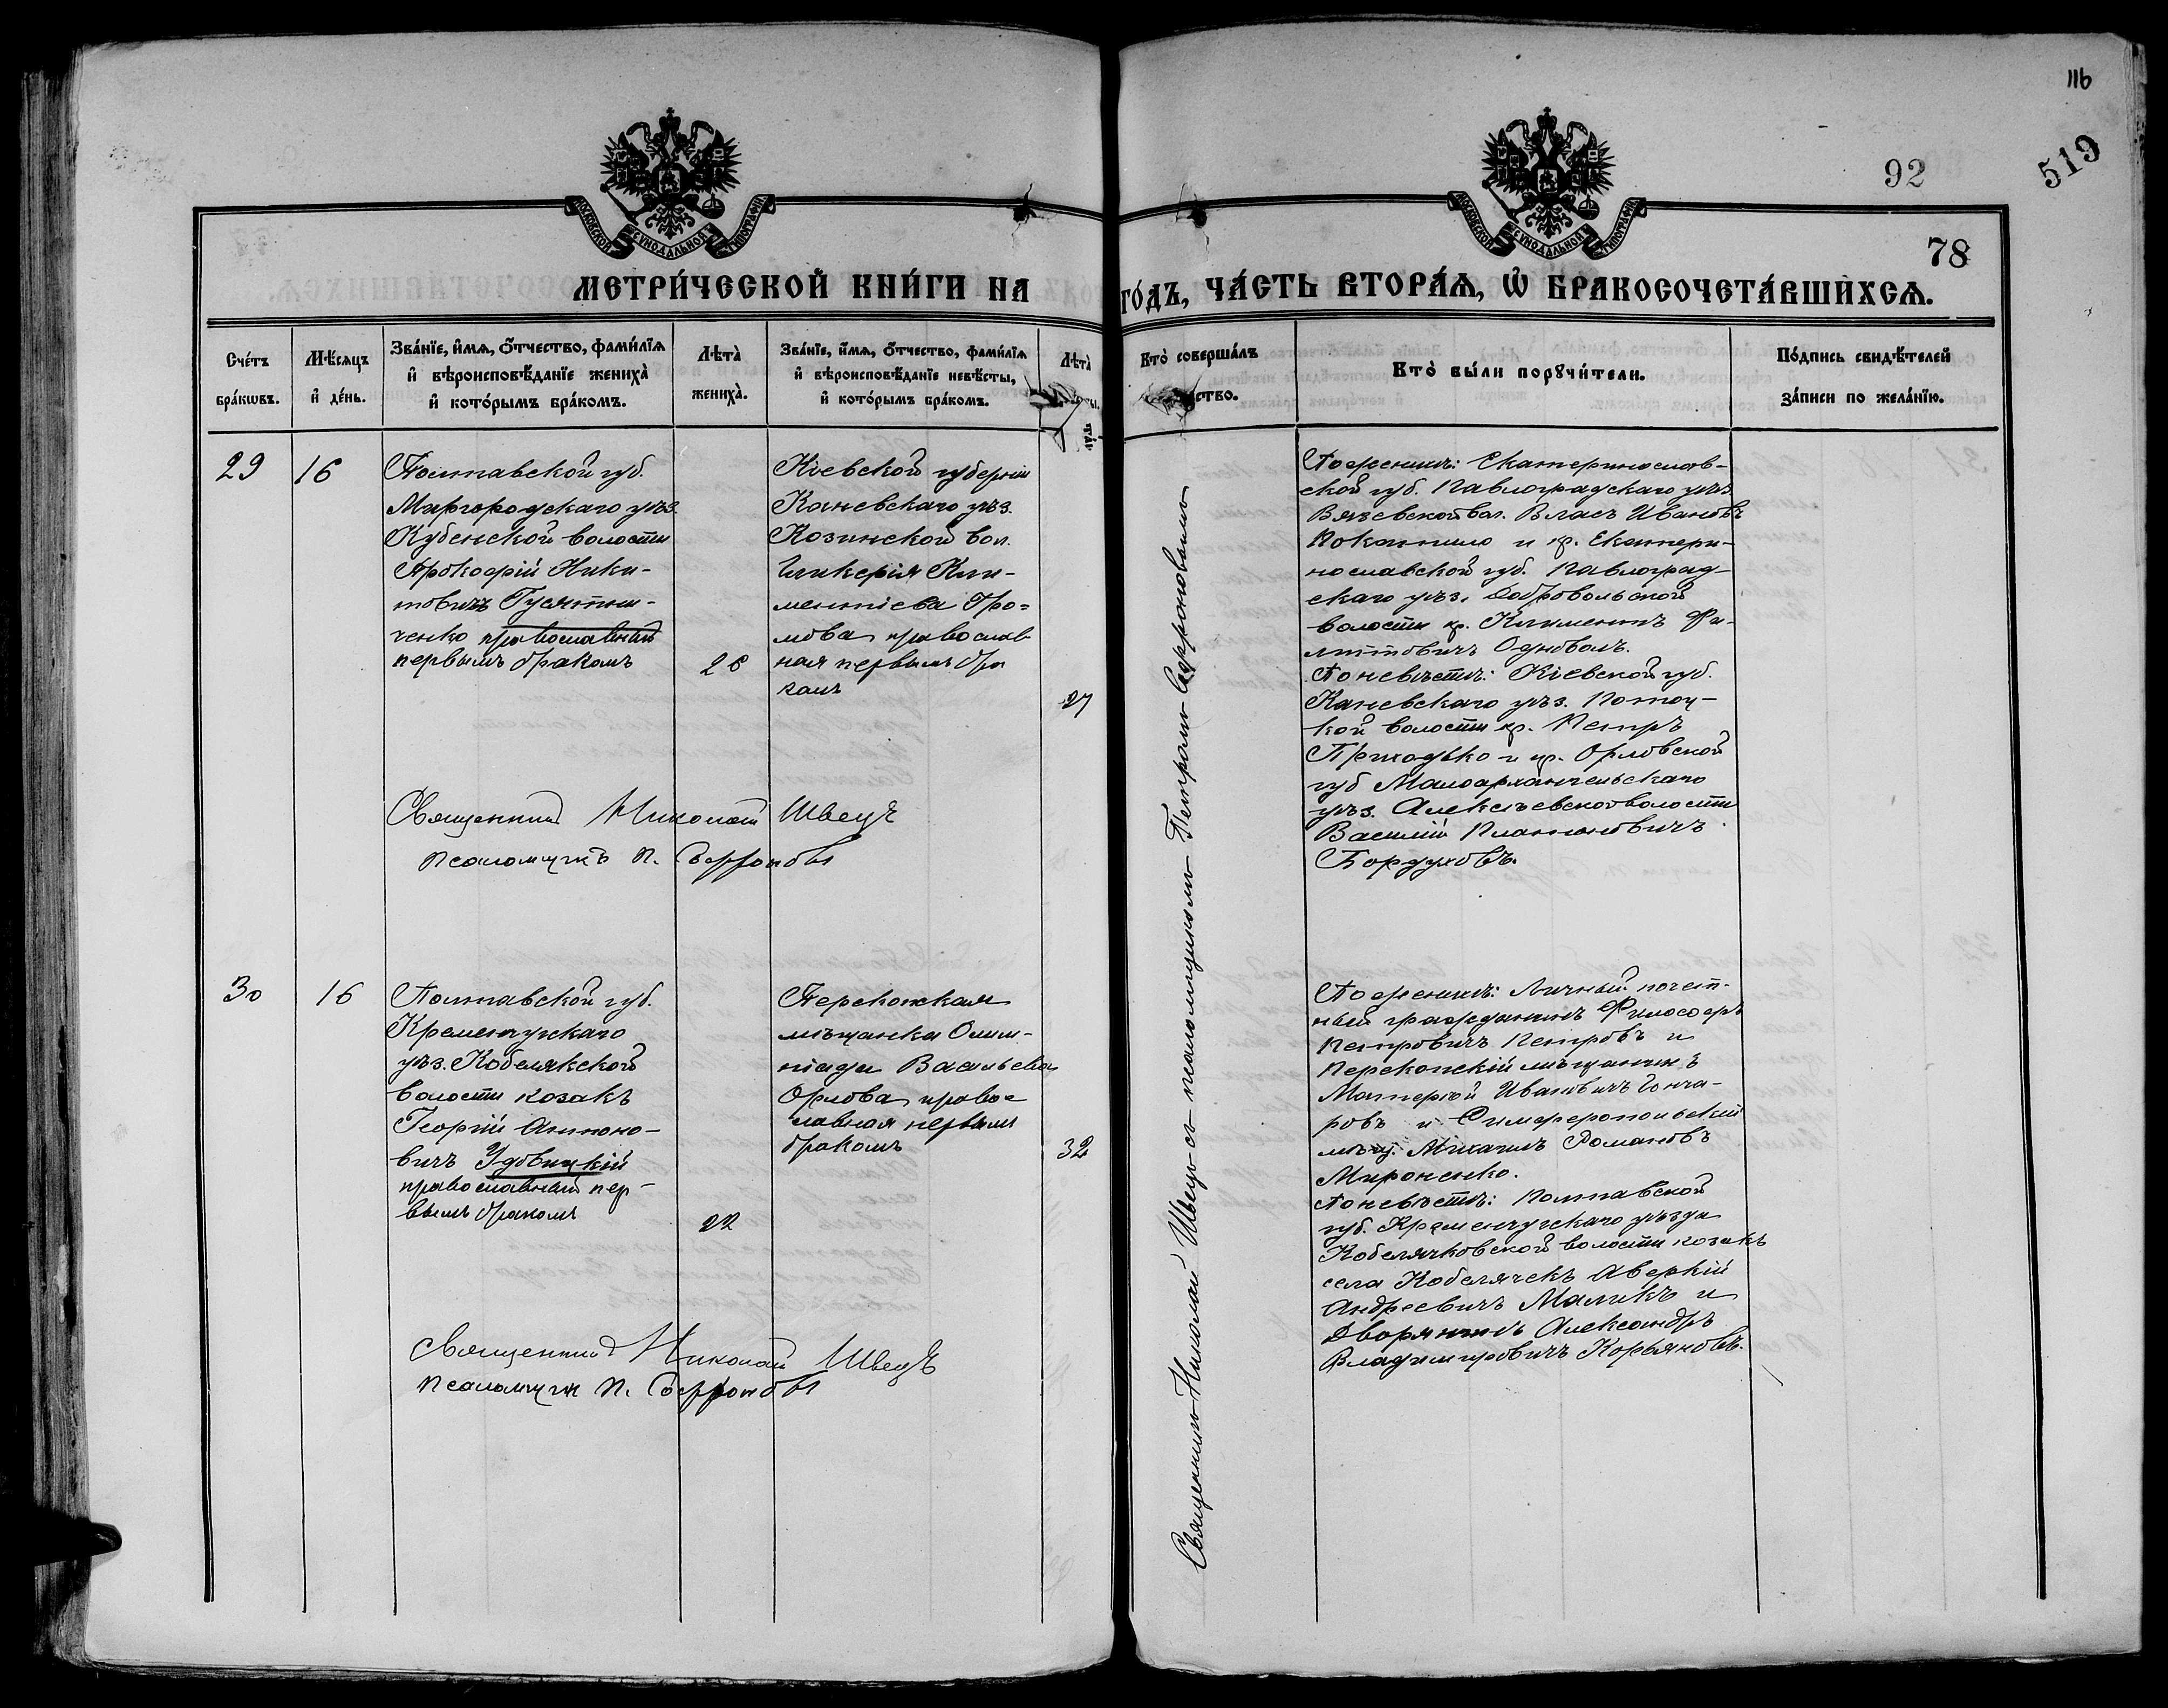 116
92
519
78
МОСКОВСКОЙ СѴНОДАЛЬНОЙ ТИПОГРАФІИ
МОСКОВСКОЙ СѴНОДАЛЬНОЙ ТИПОГРАФІИ
МЕТРИ́ЧЕСКОЙ КНИ́ГИ НА ГО́ДЪ, ЧА́СТЬ ВТОРА́Ѧ, Ѡ҆ БРАКОСОЧЕТА́ВШИХСѦ.
Сче́тъ бра́кѡвъ.
Мѣ́сяцъ и҆ де́нь.
Зва́нїе, и҆́мѧ, ѻ҆́тчество, фами́лїѧ и҆ вѣроисповѣ́данїе жениха̀ и҆ кото́рымъ бра́комъ.
Лѣта̀ жениха̀.
Зва́нїе, и҆́мѧ, ѻ҆́тчество, фами́лїѧ и҆ вѣроисповѣ́данїе невѣ́сты, и҆ кото́рымъ бра́комъ.
Лѣта̀
Кто̀ соверша́лъ
ство.
Кто̀ бы́ли порꙋчи́тели.
По́дпись свидѣ́телей за́писи по жела́нїю.
29
16
Полтавской губ.
Миргородскаго уѣз.
Кубенской волости
Прокофій Ники-
товичъ Гусятин-
ченко православный
первымъ бракомъ
28
Кіевской губерніи
Каневскаго уѣз.
Козинской вол.
Гликерія Кли-
ментіева Гро-
мова православ-
ная первымъ бра
комъ
27
Священникъ Николай Швецъ
псаломщикъ П. Софроновъ
Священникъ Николай Швецъ съ псаломщикомъ Петромъ Софроновымъ
По женихѣ: Екатеринослав-
ской губ. Павлоградскаго уѣз.
Вязевской вол. Власъ Ивановъ
Покатило и кр. Екатери-
нославской губ. Павлоград-
скаго уѣз. Добровольской
волости кр. Климентъ Фи-
липповичъ Одноволъ.
По невѣстѣ: Кіевской губ.
Каневскаго уѣз. Потоц-
кой волости кр. Петръ
Приходько и кр. Орловской
губ Малоархангельскаго
уѣз. Алексѣевской волости
Василій Платоновичъ
Бордуховъ.
30
16
Полтавской губ.
Кременчугскаго
уѣз. Кобелякской
волости козакъ
Георгій Антоно-
вичъ Удовицкій
православный пер-
вымъ бракомъ
22
Перекопская
мѣщанка Олим-
піада Васильева
Орлова правос-
лавная первымъ
бракомъ
32
Священникъ Николай Швецъ
псаломщик П. Софроновъ
По женихѣ: Личный почет-
ный гражданинъ Философъ
Петровичъ Петровъ и
Перекопскій мѣщанинъ
Матерій Ивановичъ Гонча-
ровъ и Симферопольскій
мѣщ. Михаилъ Романовъ
Мироненко.
По невѣстѣ: Полтавской
губ. Кременчугскаго уѣзда
Кобелячковской волости козакъ
села Кобелячекъ Аверкій
Андреевичъ Маликъ и
Дворянинъ Александръ
Владимировичъ Корьяновъ.